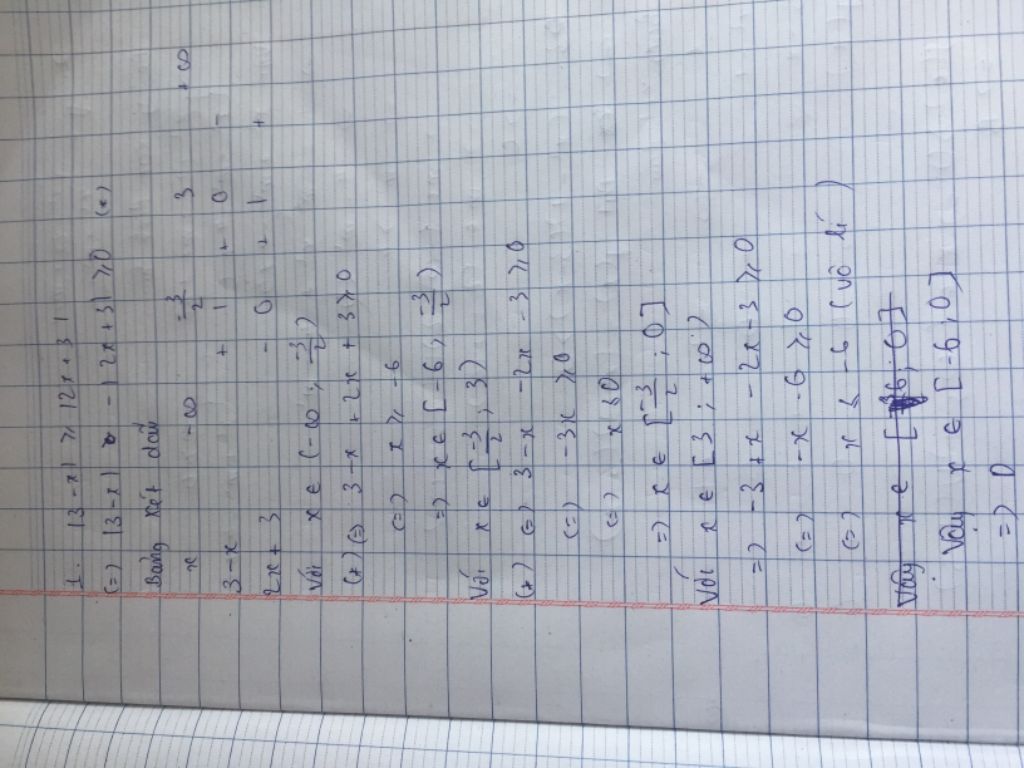 1. |3-x| ≥ |2x+3|
(=) |3-x| - |2x+3| ≥ 0 (*)
Bảng xét dấu
x -∞ -3/2 3 +∞
3-x + | + 0 -
2x+3 - 0 + | +
Với x ∈ (-∞; -3/2)
(*) (=) 3-x + 2x + 3 ≥ 0
(=) x ≥ -6
=) x ∈ [-6; -3/2)
Với x ∈ [-3/2; 3)
(*) (=) 3-x -2x -3 ≥ 0
(=) -3x ≥ 0
(=) x ≤ 0
=) x ∈ [-3/2; 0]
Với x ∈ [3; +∞)
=) -3+x - 2x-3 ≥ 0
(=) -x -6 ≥ 0
(=) x ≤ -6 (vô lí)
Vậy x ∈ [-6; 0]
Vậy x ∈ [-6; 0]
=) D